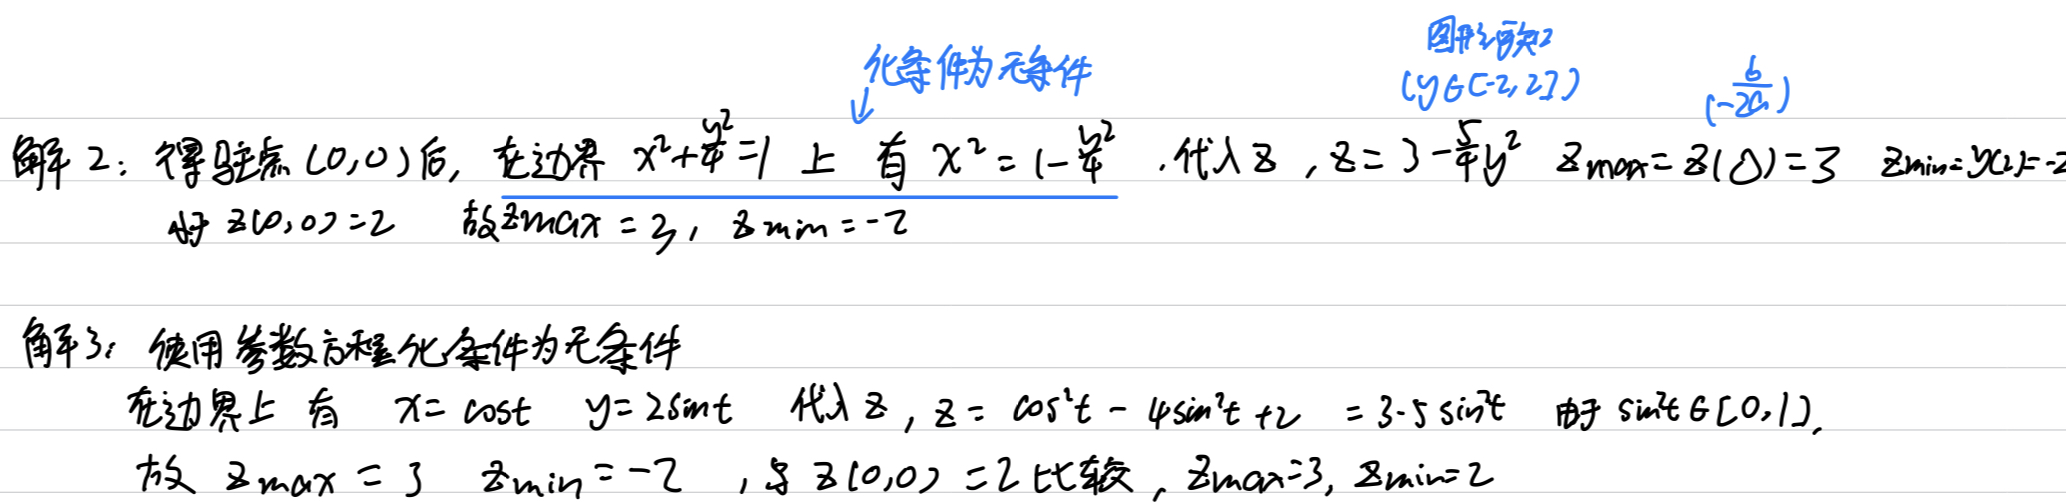 化条件为无条件
图形可知
(y∈[-2,2])
(-b/2a)
解2: 得驻点(0,0)后, 在边界 x²+y²/4=1 上 有 x²=1-y²/4 .代入z , z=3-5/4y² zmax=z(0)=3 zmin=y(2)=-2
z(0,0)=2 故zmax=3, zmin=-2
解3: 使用参数方程化条件为无条件
在边界上 有 x=cost y=2sint 代入z, z=cos²t-4sin²t+2 =3-5sin²t 由于 sin²t∈[0,1],
故 zmax=3 zmin=-2 ,与z(0,0)=2比较, zmax=3, zmin=2